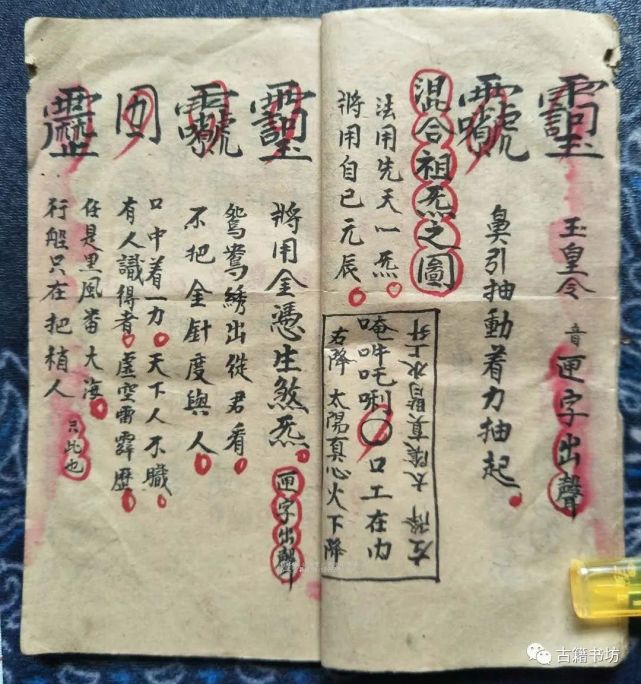 玉皇令 音 匣字出聲
鼻引抽動着力抽起
混合祖炁之圖
法用先天一炁
將用自己元辰
左降 太陰真腎水上升
唵吽吒唎〇口工在内
右降 太陽真心火下降
將用金憑生煞炁 匣字出聲
鴛鴦綉出從君看
不把金針度與人
口中着一力天下人不職
有人識得者虛空雷霹歷
任是黑風畨大海
行船只在把梢人 只此也
古籍书坊